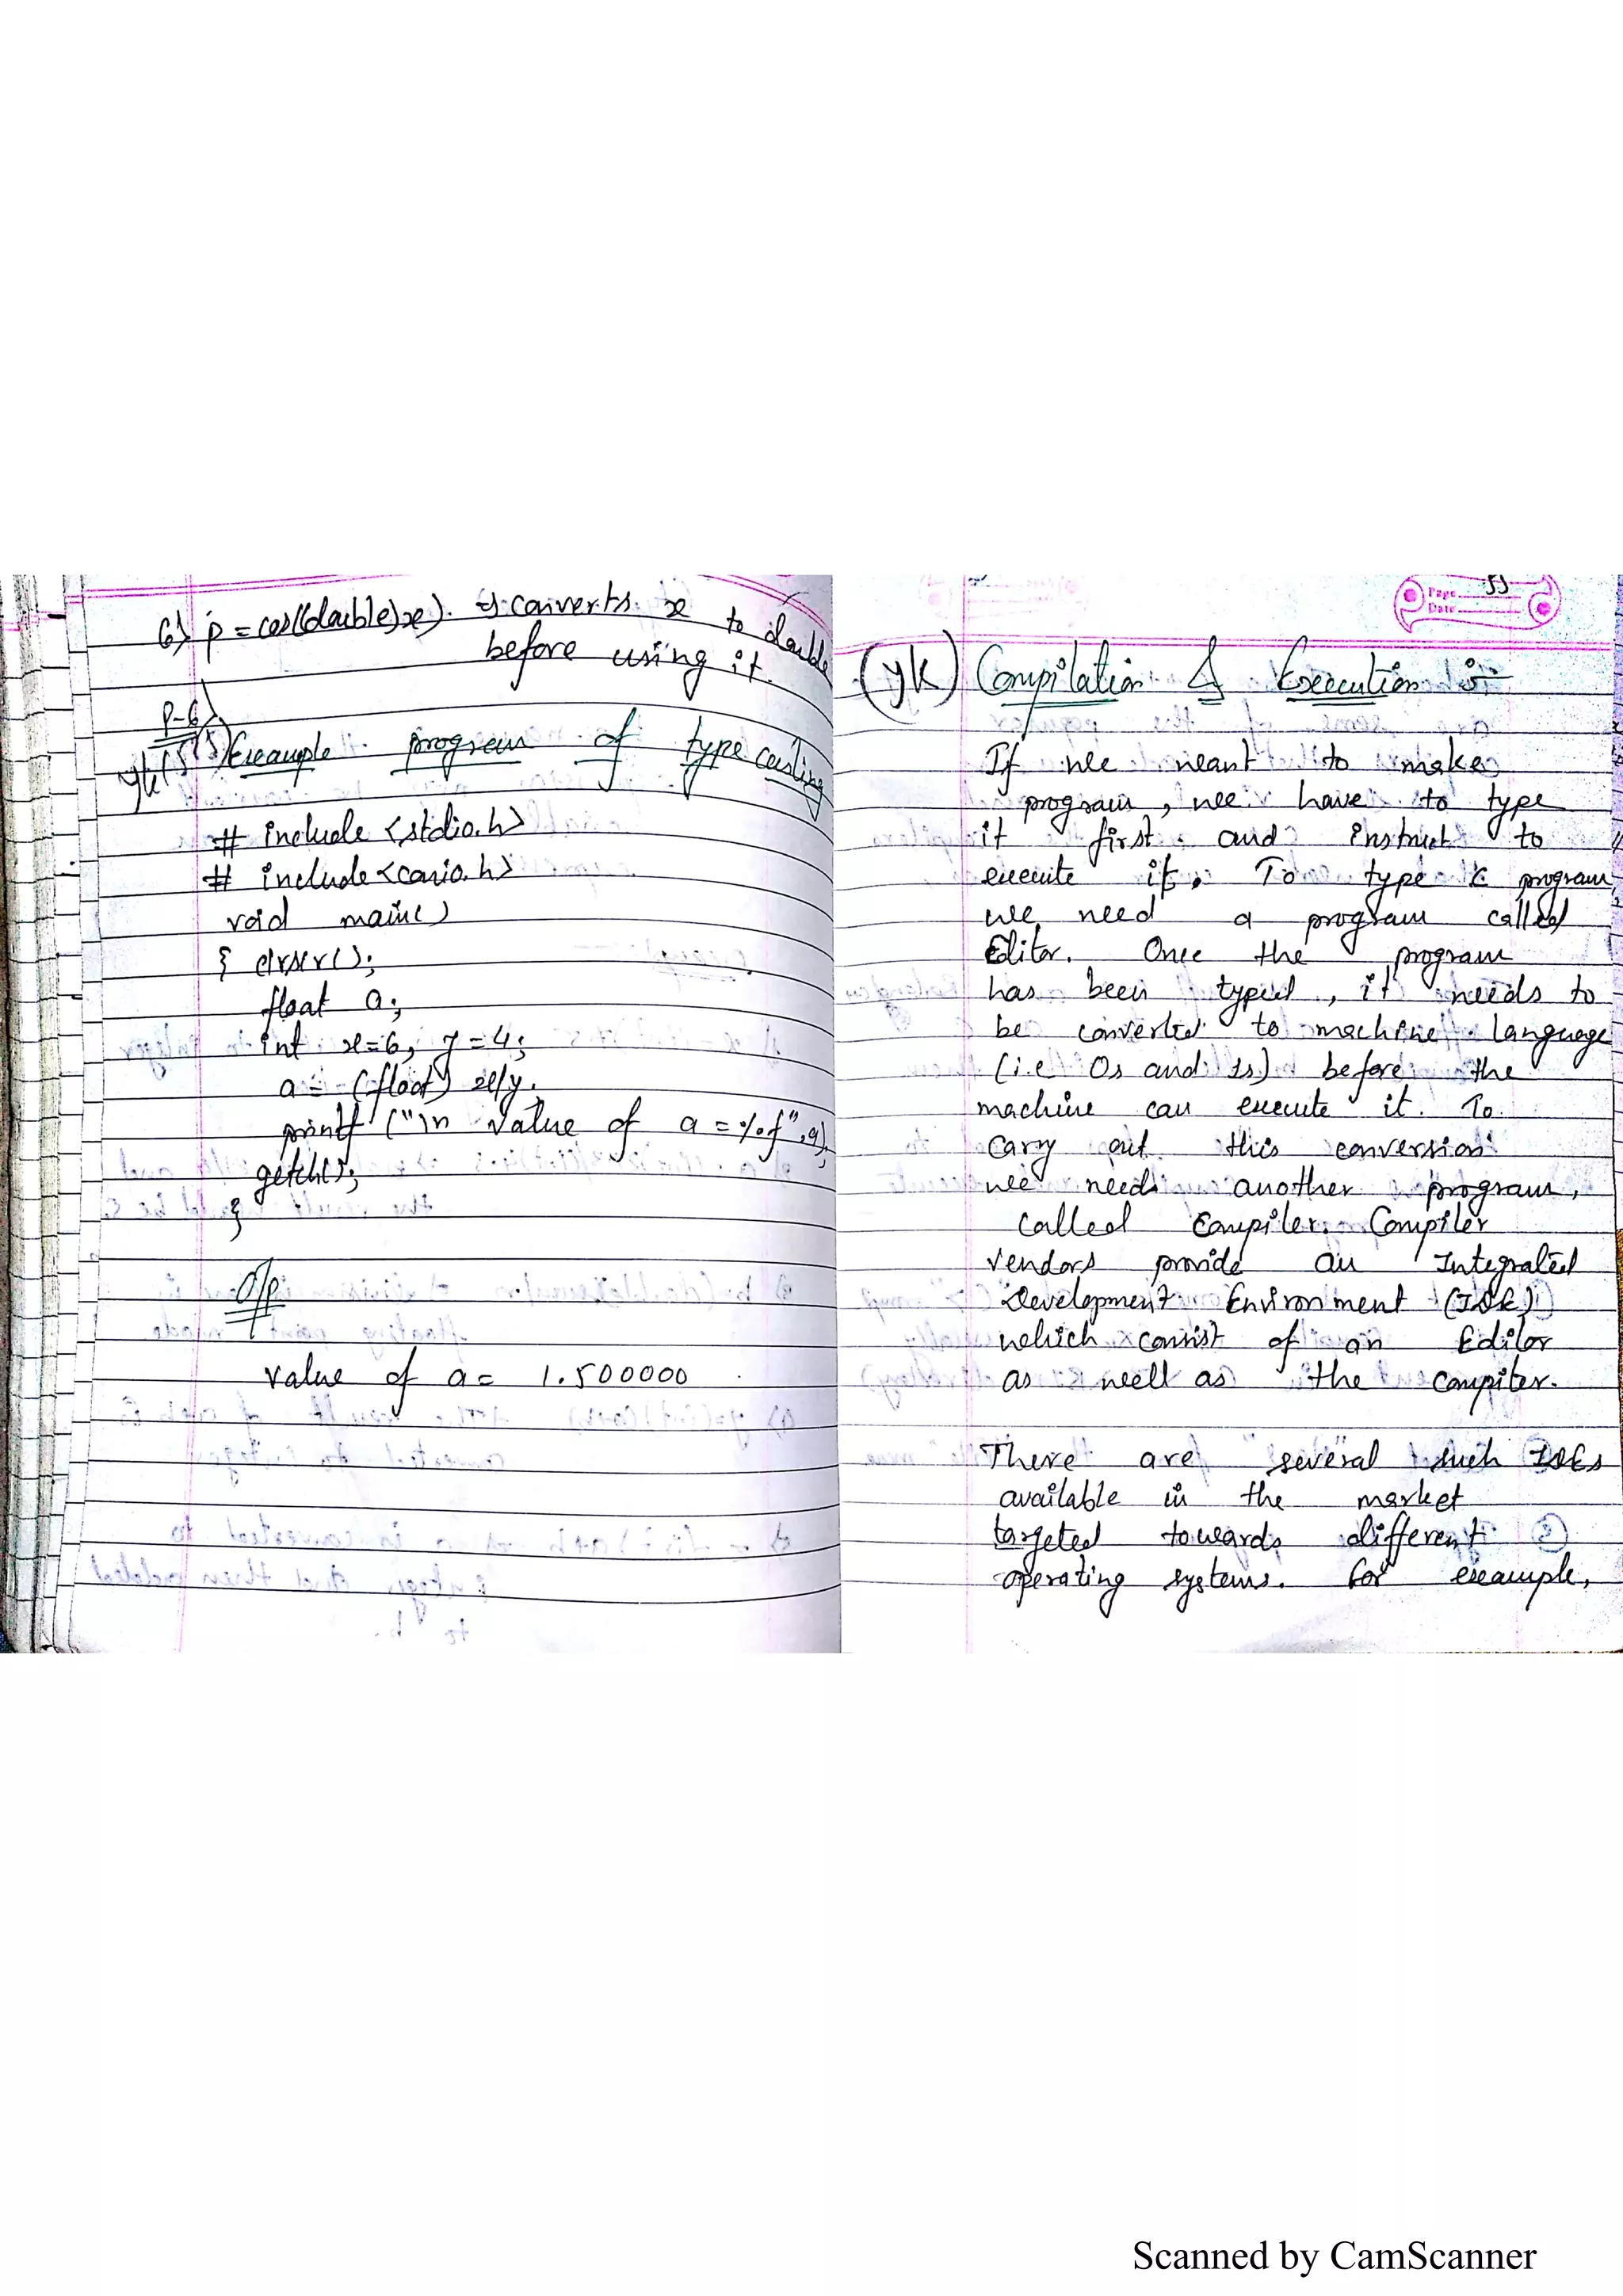 6) p = cos((double)x). → converts x to double
before using it.
P-6)
Example program of type casting
# include <stdio.h>
# include <conio.h>
void main()
{ clrscr();
float a;
int x=6, y=4;
a = (float) x/y;
printf ("\n Value of a = %f", a);
getch();
}
O/p
Value of a = 1.500000
Page 55
Date
(yk) Compilation & Execution :-
If we want to make
program, we have to type
it first and instruct to
execute it. To type C program
we need a program called
Editor. Once the program
has been typed, it needs to
be converted to machine language
(i.e 0s and 1s) before the
machine can execute it. To
carry out this conversion
we need another program,
called Compiler. Compiler
vendors provide an Integrated
Development Environment (IDE)
which consist of an Editor
as well as the compiler.
There are several such IDEs
available in the market
targeted towards different
operating systems. For example,
Scanned by CamScanner